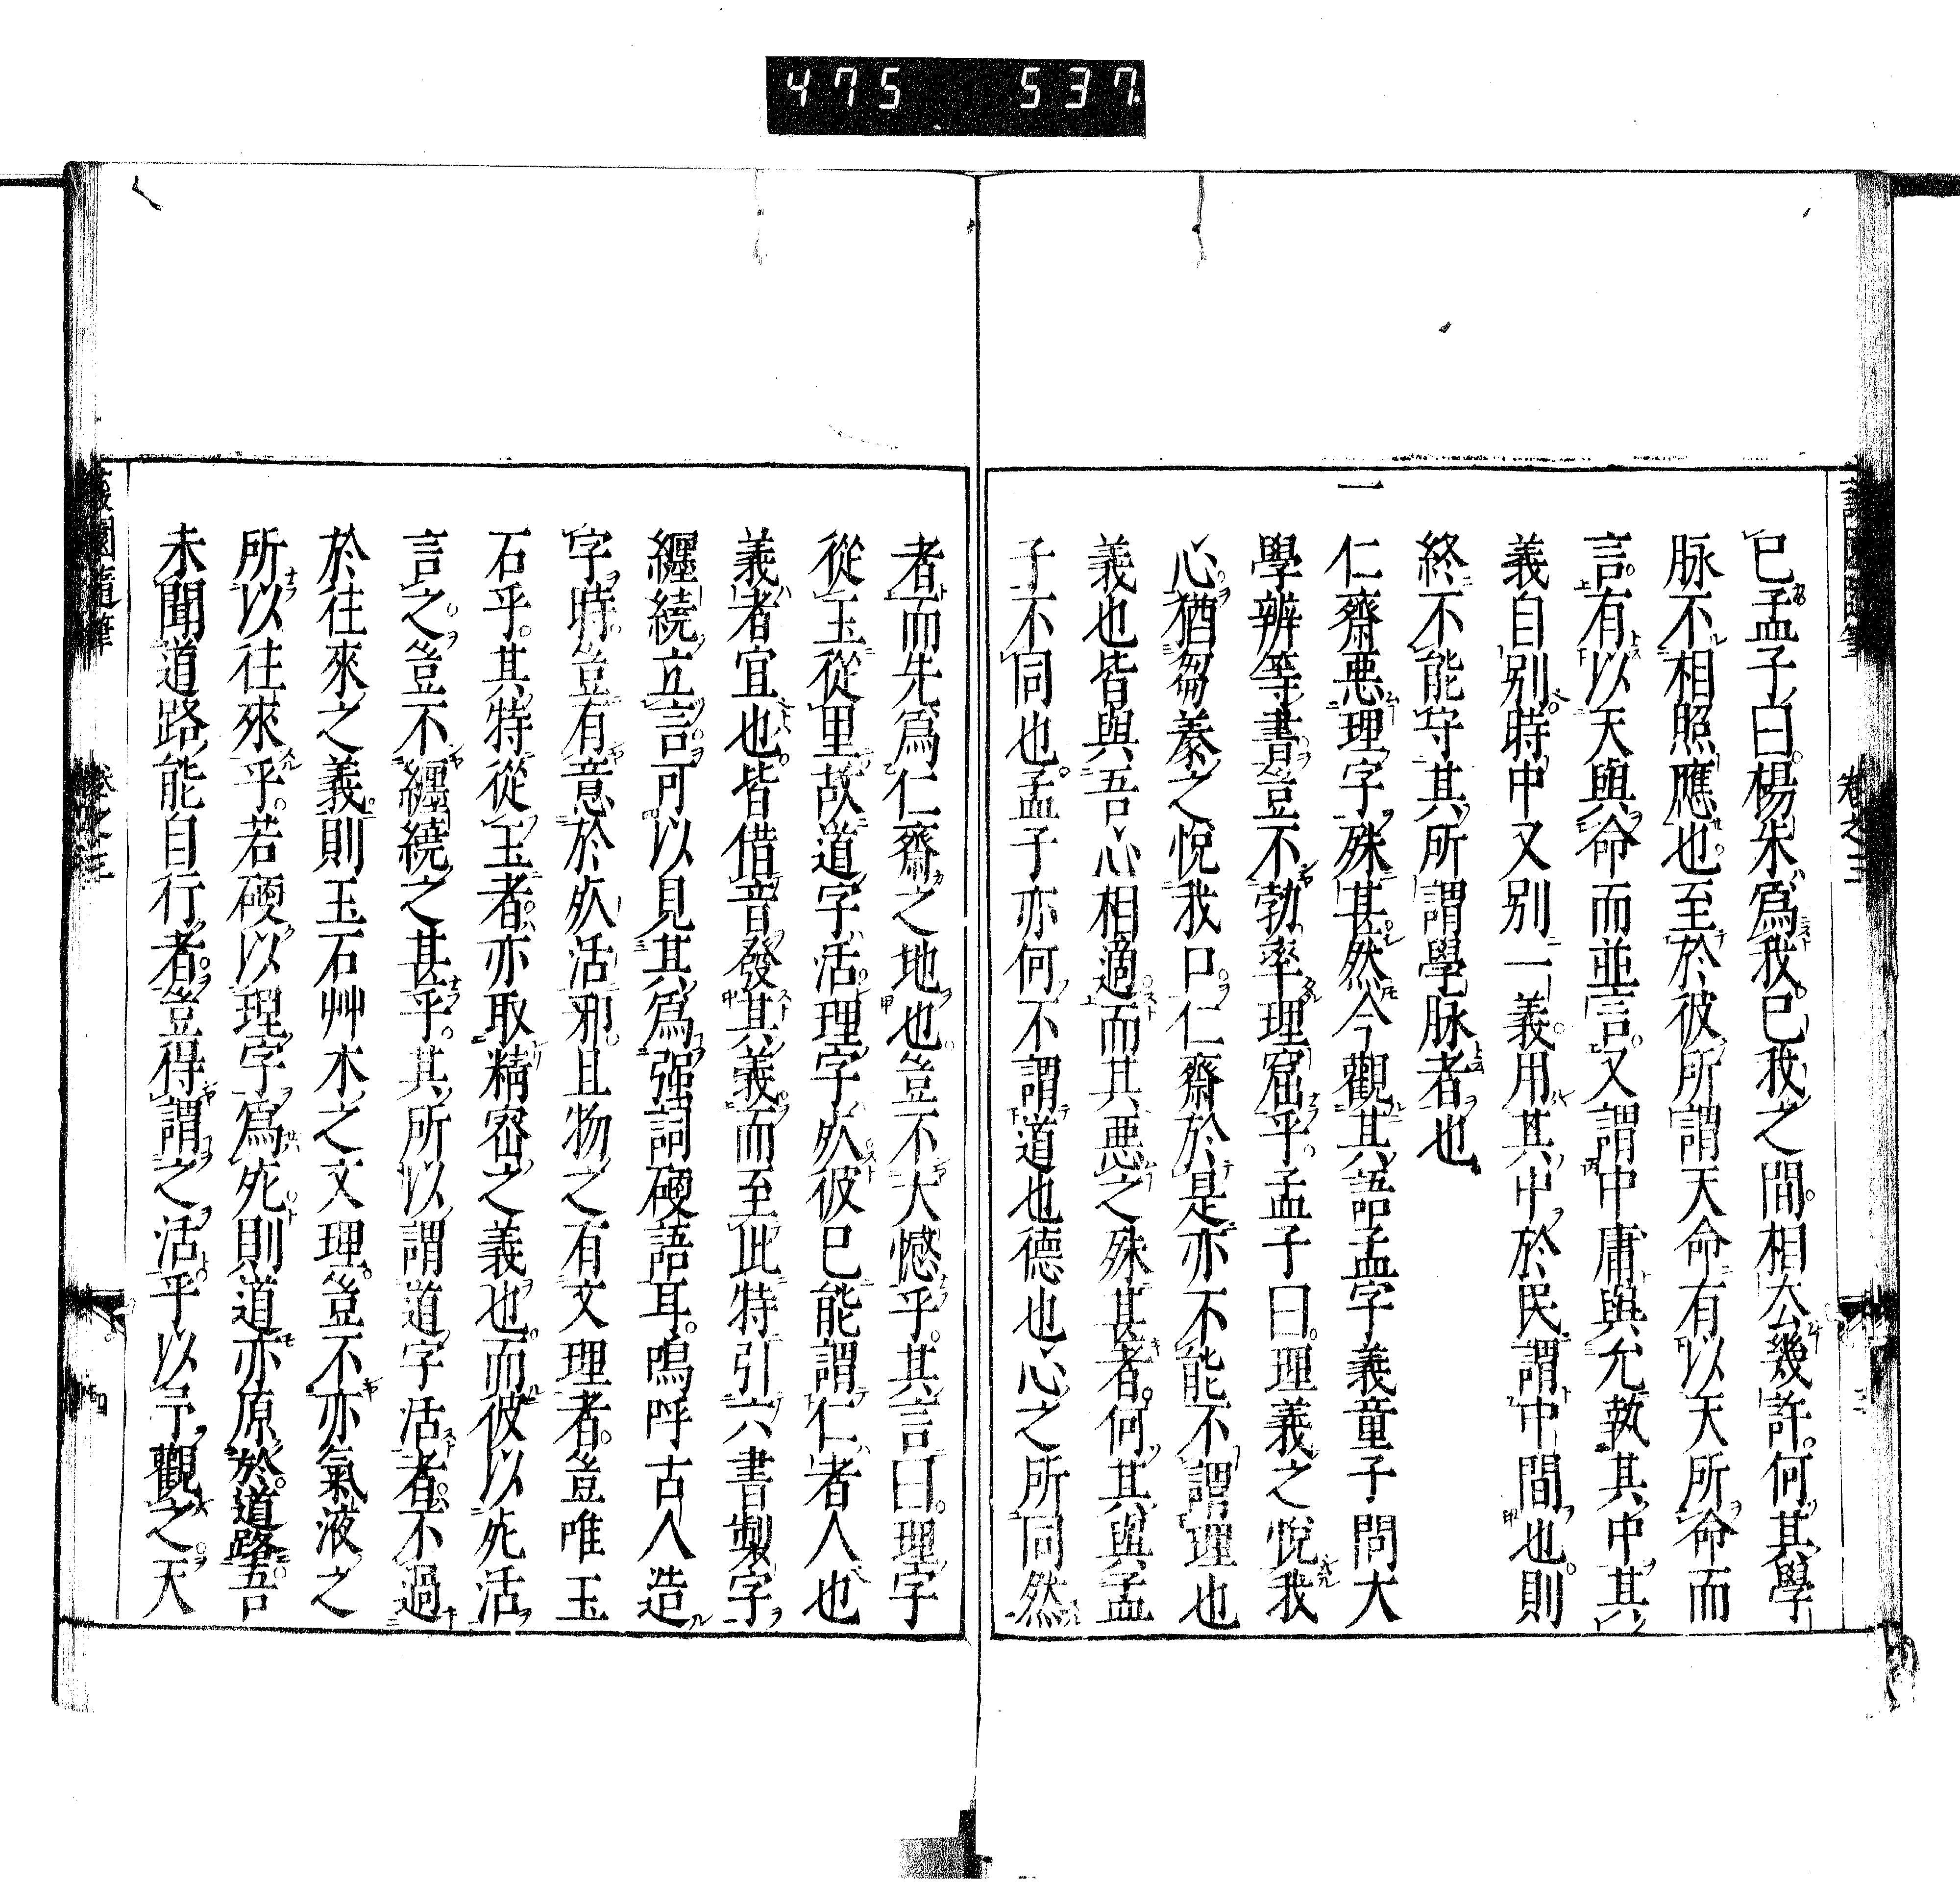 475 537
已孟子曰楊朱爲我已我之間相公幾許何其學
脉不相照應也至於彼所謂天命有以天所命而
言有以天與命而並言又謂中庸與允執其中其
義自別時中又別一義用其中於民謂中間也則
終不能守其所謂學脉者也
一
仁齋惡理字殊甚然今觀其語孟字義童子問大
學辨等書豈不勃率理窟乎孟子曰理義之悅我
心猶芻豢之悅我口仁齋於是亦不能不謂理也
義也皆與吾心相適而其惡之殊甚者何其與孟
子不同也孟子亦何不謂道也德也心之所同然
者而先爲仁齋之地也豈不大憾乎其言曰理字
從玉從里故道字活理字死彼已能謂仁者人也
義者宜也皆借音發其義而至此特引六書製字
纏繞立言可以見其爲强詞硬語耳嗚呼古人造
字時豈有意於死活邪且物之有文理者豈唯玉
石乎其特從玉者亦取精密之義也而彼以死活
言之豈不纏繞之甚乎其所以謂道字活者不過
於往來之義則玉石艸木之文理豈不亦氣液之
所以往來乎若硬以理字爲死則道亦原於道路吾
未聞道路能自行者豈得謂之活乎以予觀之天
園隨筆
卷之三